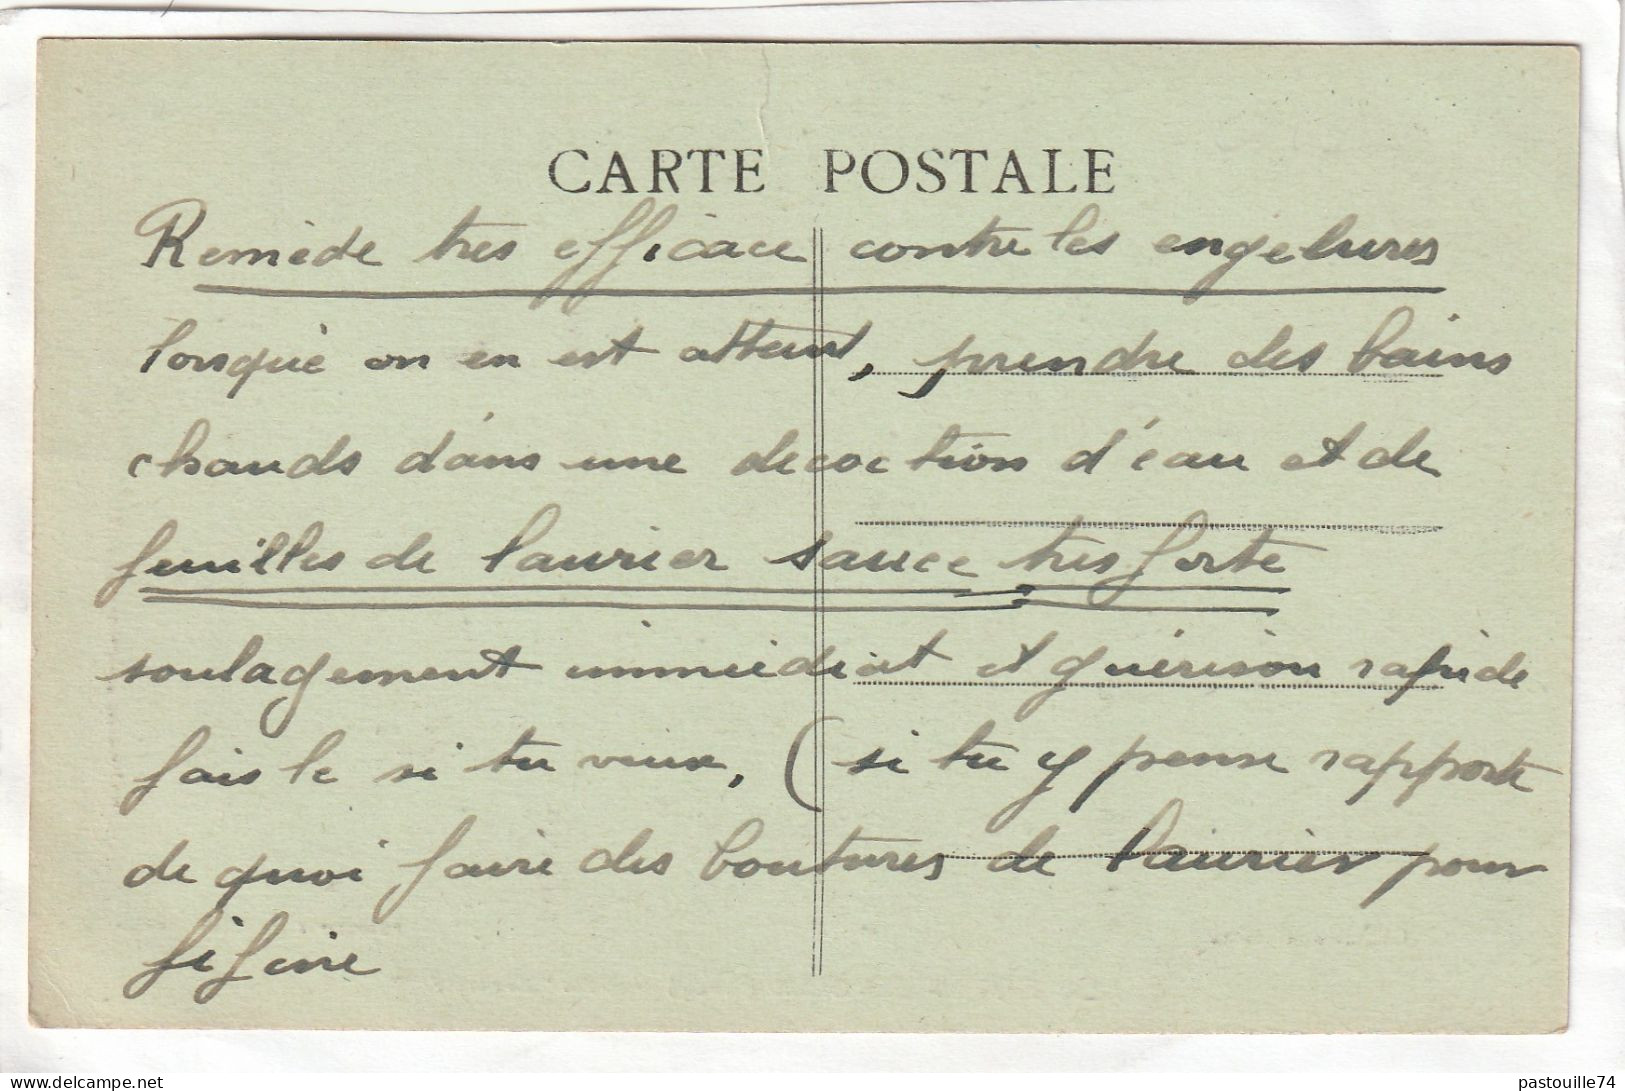 CARTE POSTALE
Remède tres efficace contre les engelures
lorsque on en est atteint, prendre des bains
chauds dans une decoction d'eau et de
feuilles de laurier sauce tres forte
soulagement immédiat et guérison rapide
fais le si tu veux, (si tu y pense rapporte
de quoi faire des boutures de laurier pour
fifine
www.delcampe.net
pastouille74